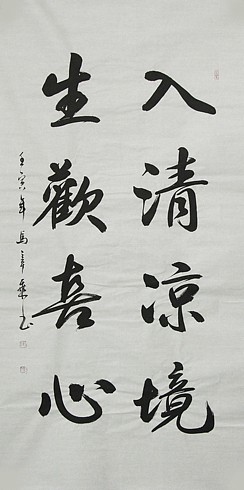 入清凉境
生歡喜心
壬寅年马